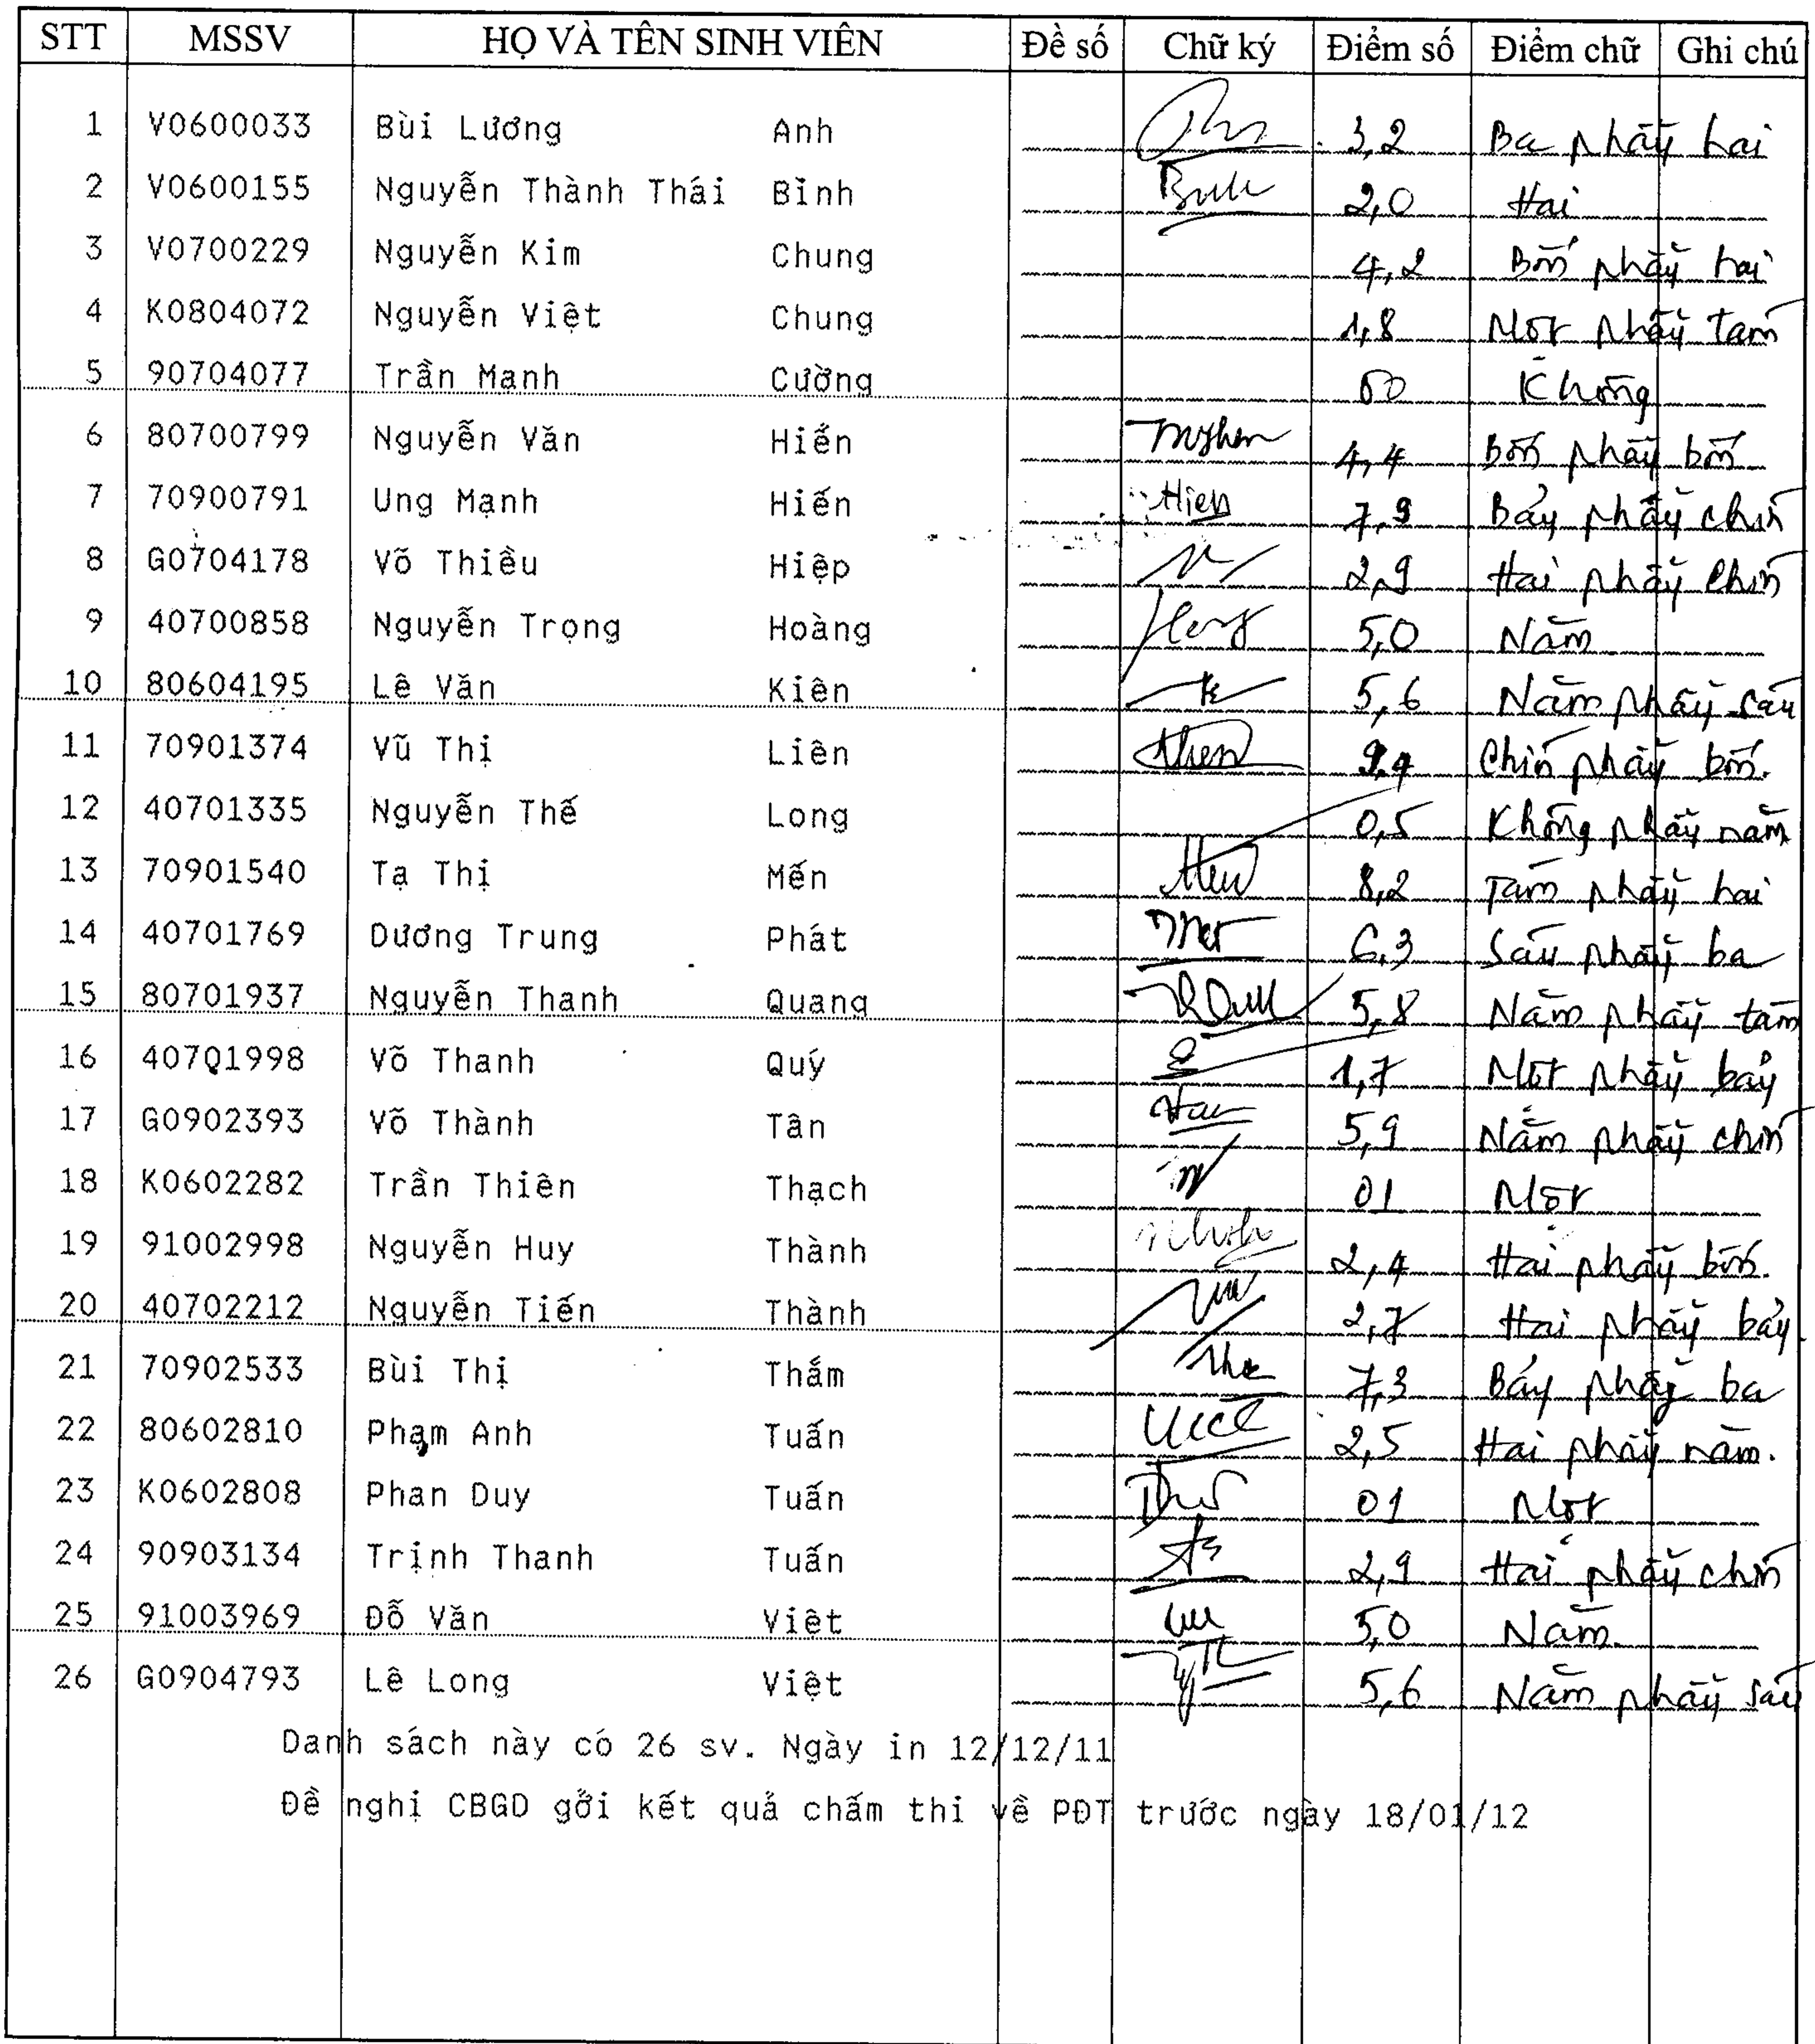 STT MSSV HỌ VÀ TÊN SINH VIÊN Đề số Chữ ký Điểm số Điểm chữ Ghi chú
1 V0600033 Bùi Lương Anh 3,2 Ba phẩy hai
2 V0600155 Nguyễn Thành Thái Bình 2,0 Hai
3 V0700229 Nguyễn Kim Chung 4,2 Bốn phẩy hai
4 K0804072 Nguyễn Việt Chung 1,8 Một phẩy tám
5 90704077 Trần Mạnh Cường 00 Không
6 80700799 Nguyễn Văn Hiến 4,4 Bốn phẩy bốn
7 70900791 Ung Mạnh Hiến Hien 7,9 Bảy phẩy chín
8 G0704178 Võ Thiều Hiệp 2,9 Hai phẩy chín
9 40700858 Nguyễn Trọng Hoàng 5,0 Năm
10 80604195 Lê Văn Kiên 5,6 Năm phẩy sáu
11 70901374 Vũ Thị Liên 9,4 Chín phẩy bốn.
12 40701335 Nguyễn Thế Long 0,5 Không phẩy năm
13 70901540 Tạ Thị Mến 8,2 Tám phẩy hai
14 40701769 Dương Trung Phát 6,3 Sáu phẩy ba
15 80701937 Nguyễn Thanh Quang 5,8 Năm phẩy tám
16 40701998 Võ Thanh Quý 1,7 Một phẩy bảy
17 G0902393 Võ Thành Tân 5,9 Năm phẩy chín
18 K0602282 Trần Thiên Thạch 01 Một
19 91002998 Nguyễn Huy Thành 2,4 Hai phẩy bốn.
20 40702212 Nguyễn Tiến Thành 2,7 Hai phẩy bảy.
21 70902533 Bùi Thị Thắm 7,3 Bảy phẩy ba
22 80602810 Phạm Anh Tuấn 2,5 Hai phẩy năm.
23 K0602808 Phan Duy Tuấn 01 Một
24 90903134 Trịnh Thanh Tuấn 2,9 Hai phẩy chín
25 91003969 Đỗ Văn Việt 5,0 Năm.
26 G0904793 Lê Long Việt 5,6 Năm phẩy sáu
Danh sách này có 26 sv. Ngày in 12/12/11
Đề nghị CBGD gởi kết quả chấm thi về PĐT trước ngày 18/01/12